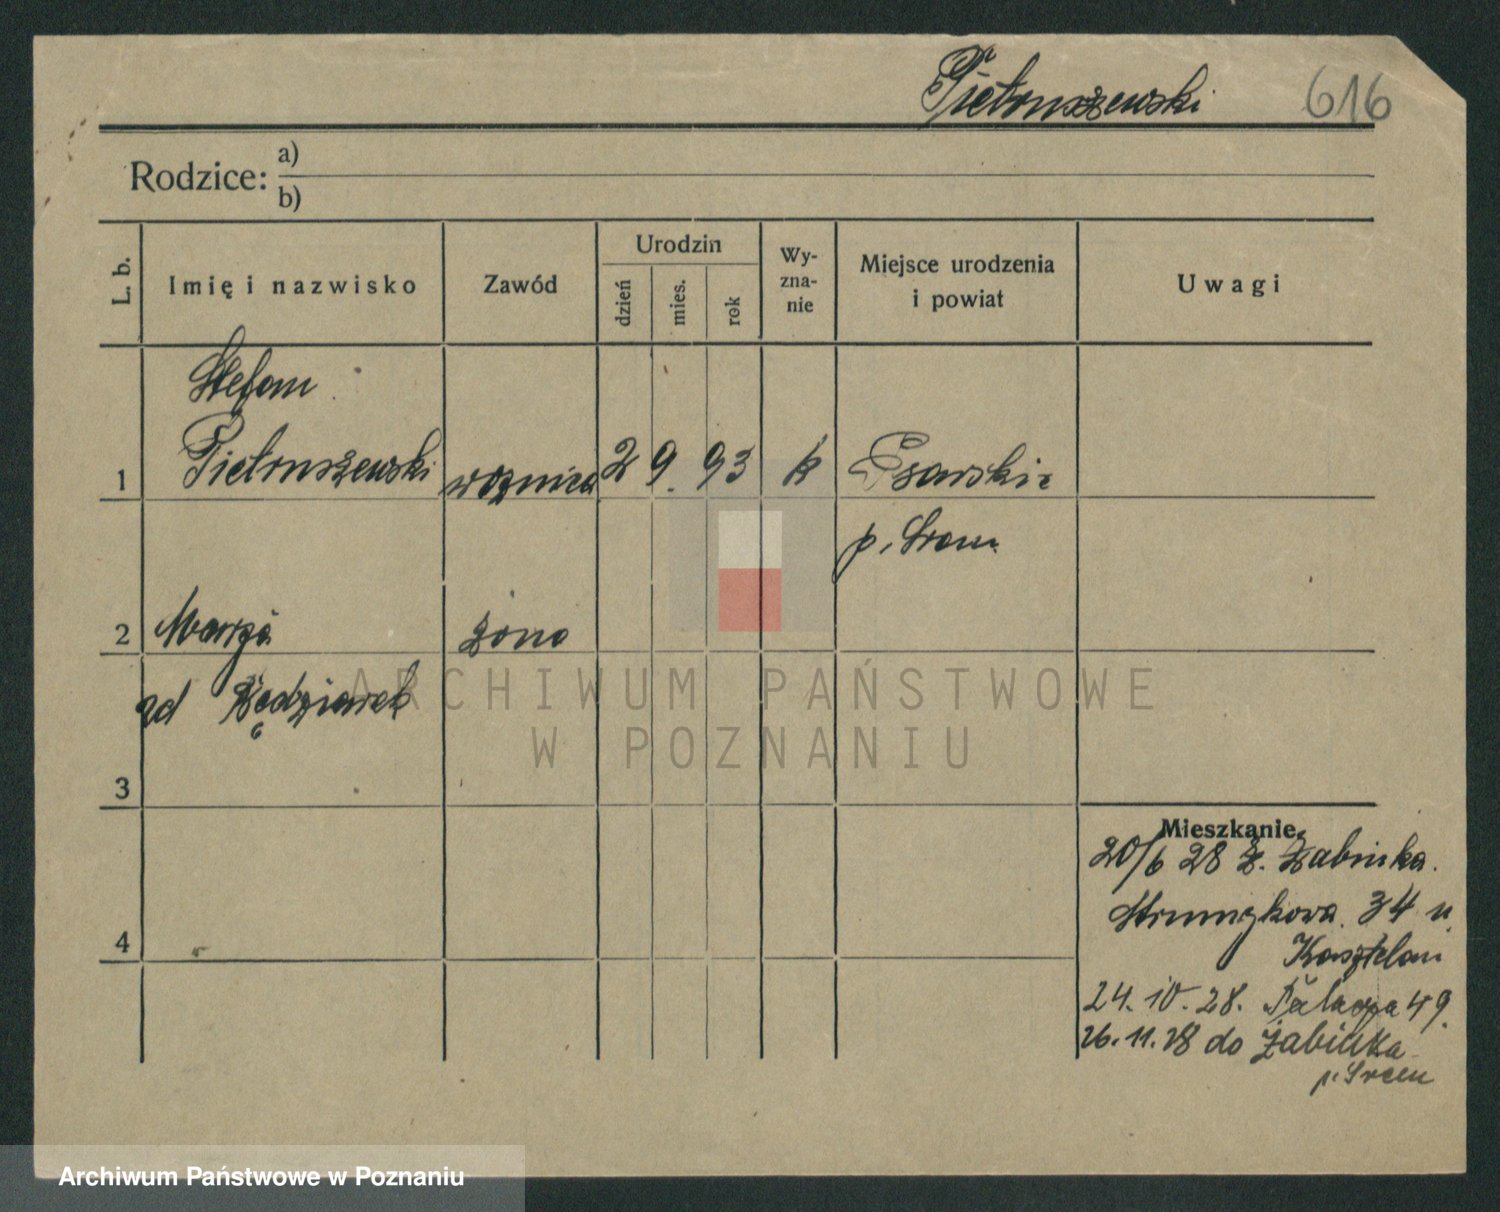 Pietruszewski 616
Rodzice: a)
b)
L. b. Imię i nazwisko Zawód Urodzin dzień mies. rok Wy-zna-nie Miejsce urodzenia i powiat Uwagi
Stefan
1 Pietruszewski woznica 2 9. 93 k Psarskie
p. Srem
2 Marja żona
zd Kędziorek
3
4
Mieszkanie
20/6 28 z. Żabinka.
Strumykowa 34 u
Kasztelan
24. 10. 28. Palacza 49.
26. 11. 28 do Żabinka
p. Srem
ARCHIWUM PAŃSTWOWE
W POZNANIU
Archiwum Państwowe w Poznaniu